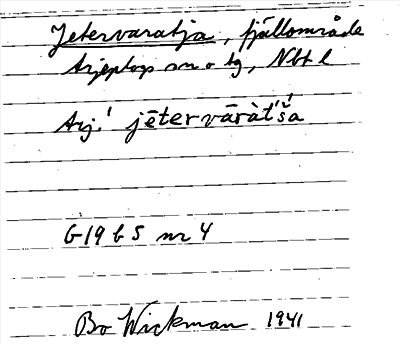 Jetervaratja, fjällområde
Arjeplogs sn o tg, Nbt l
Arj.! jētervāràt́š́a
G19 b 5 nr 4
Bo Wickman 1941